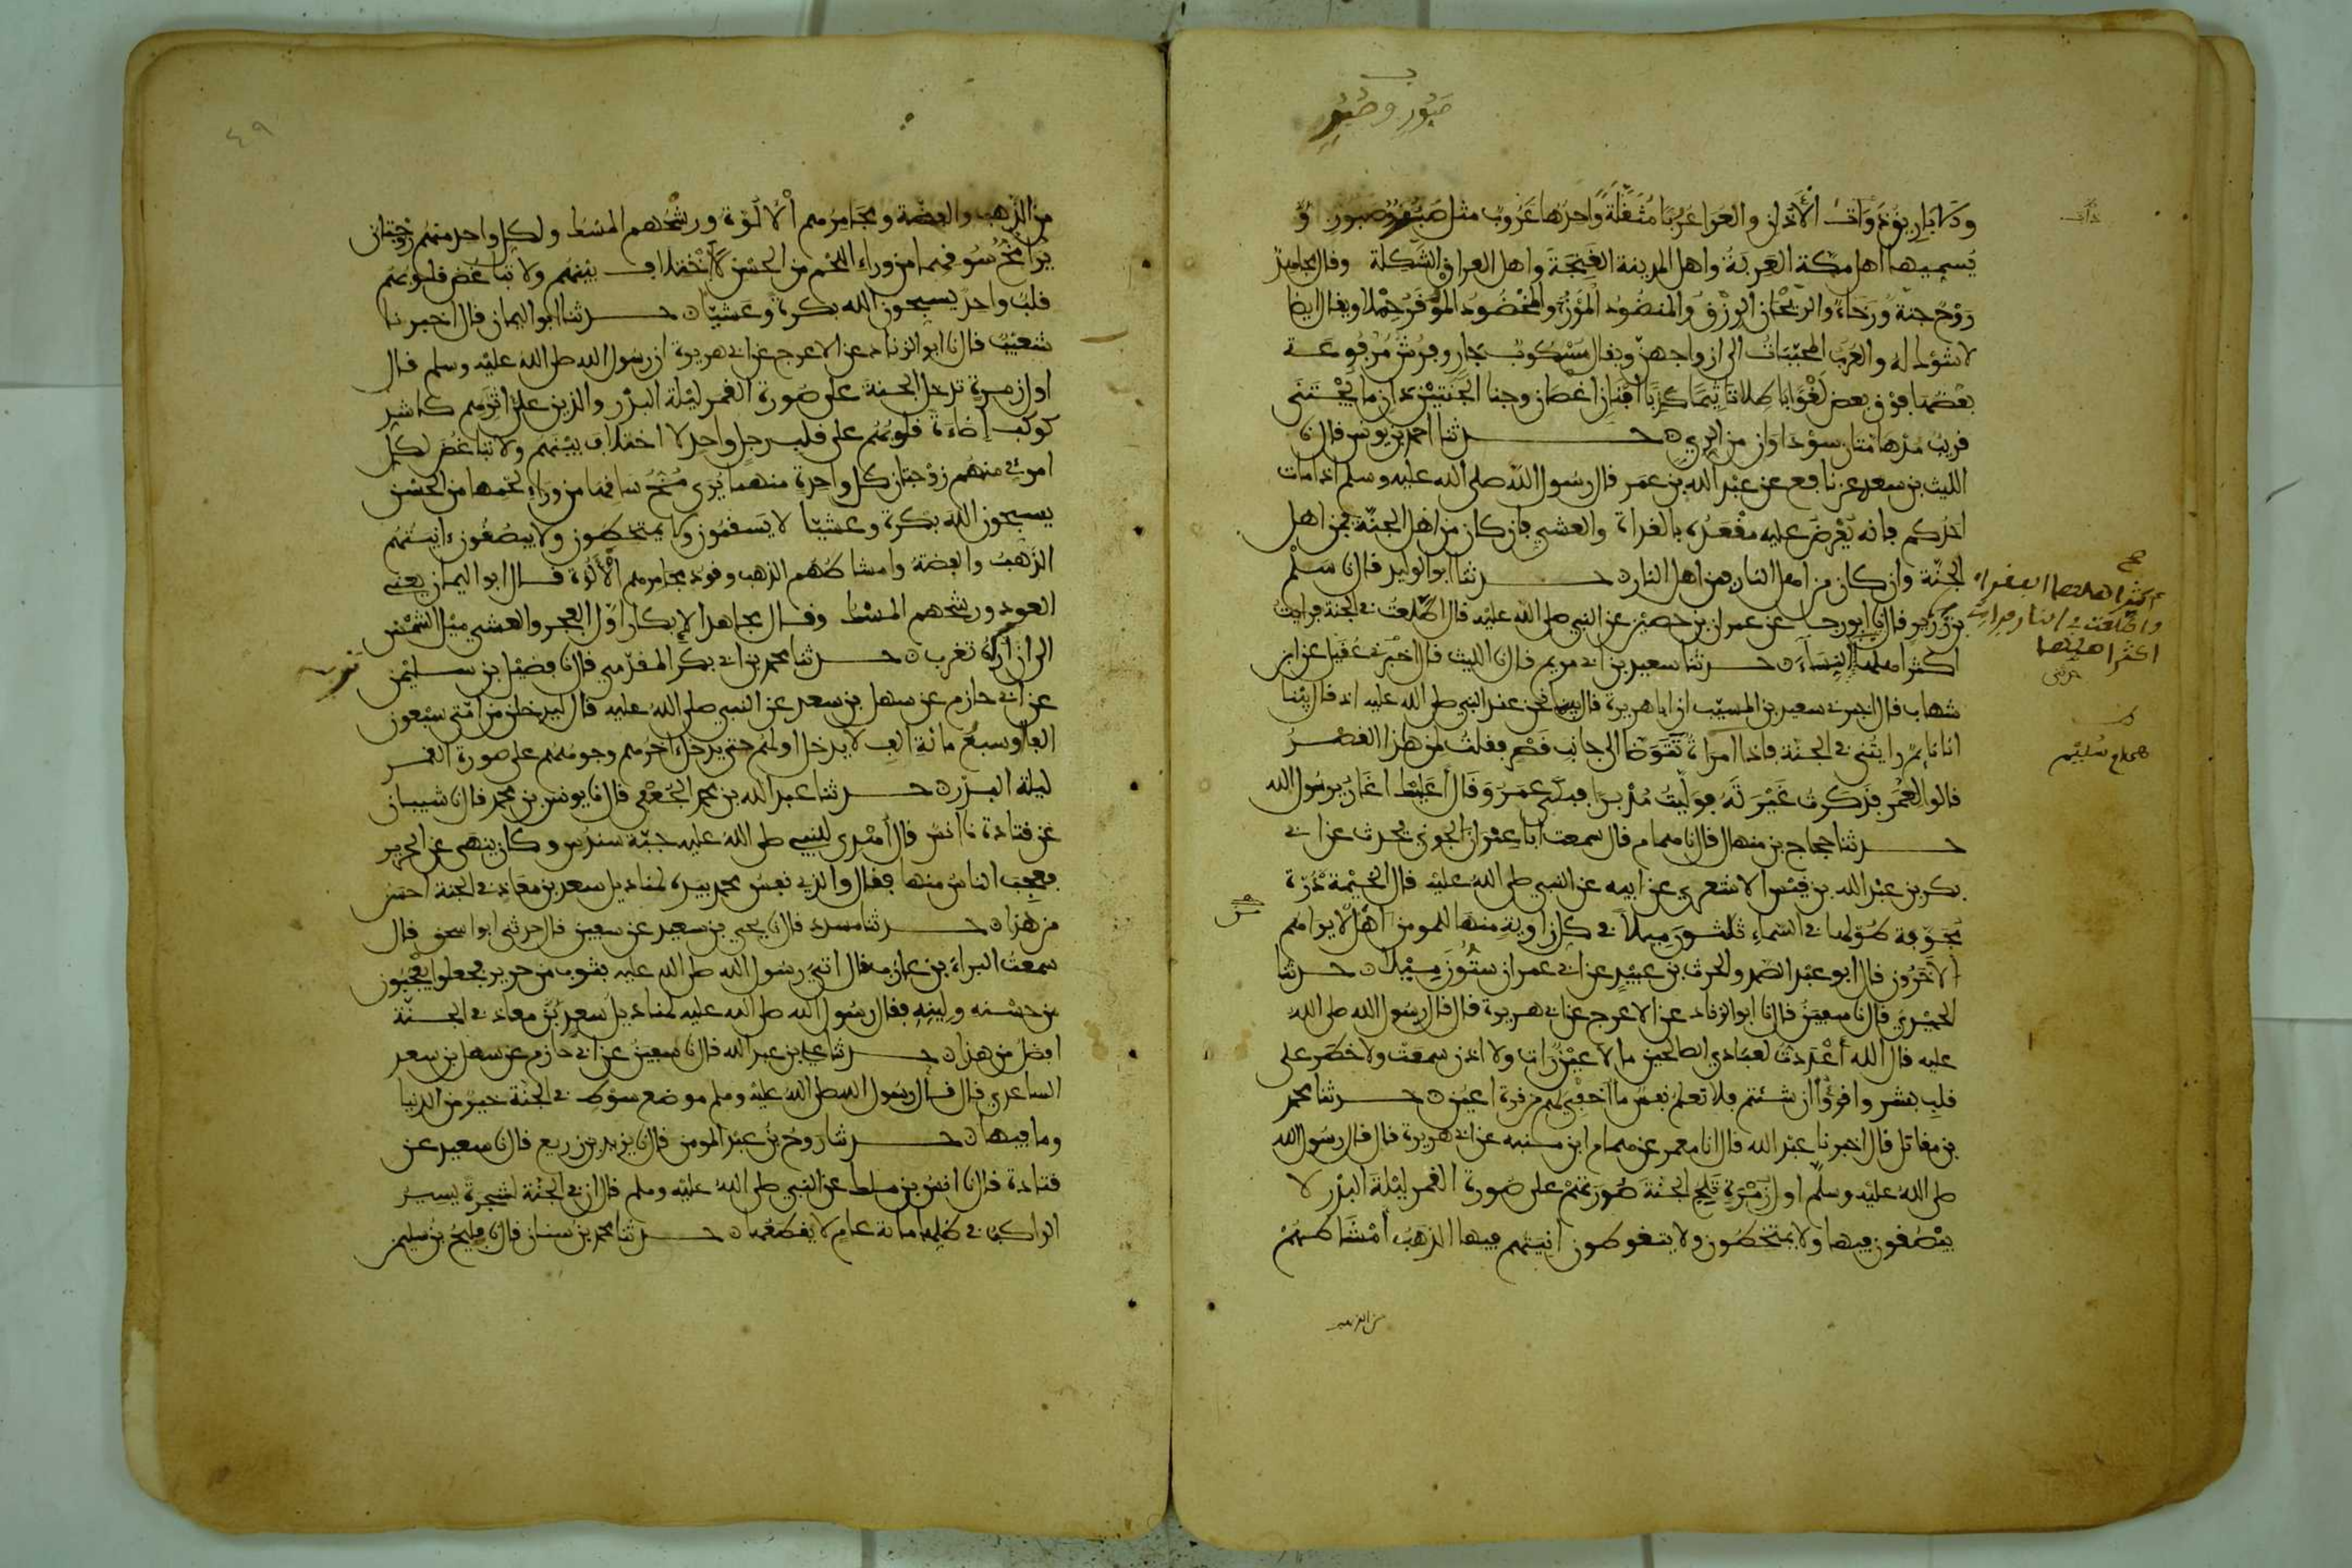 صبور وصبر
ولا باريق ذوات الاذان والعرا عربا مثقلة واحدها عروب مثل صبور وصبر
يسميها اهل مكة العربة واهل المدينة الغنجة واهل العراق الشكلة وقال مجاهد
روح جنة ورخاء والريحان الرزق والمنضود الموز والمخضود الموقر حملا ويقال ايضا
لا شوك له والعرب المحببات الى ازواجهن ويقال مسكوب جار وفرش مرفوعة
بعضها فوق بعض لغوا باطلا تاثيما كذبا افنان اغصان وجنا الجنتين دان ما يجتنى
قريب مدهامتان سوداوان من الري حدثنا احمد بن يونس قال نا
الليث بن سعد عن نافع عن عبد الله بن عمر قال رسول الله صلى الله عليه وسلم اذا مات
احدكم فانه يعرض عليه مقعده بالغداة والعشي فان كان من اهل الجنة فمن اهل
الجنة وان كان من اهل النار فمن اهل النار حدثنا ابو الوليد قال نا سلم
بن زرير قال نا ابو رجاء عن عمران بن حصين عن النبي صلى الله عليه قال اطلعت في الجنة فرايت
اكثر اهلها النساء حدثنا سعيد بن ابي مريم قال نا الليث قال اخبرني عقيل عن ابن
شهاب قال اخبرني سعيد بن المسيب ان ابا هريرة قال بينا نحن عند النبي صلى الله عليه اذ قال بينا
انا نائم رايتني في الجنة فاذا امراة تتوضا الى جانب قصر فقلت لمن هذا القصر
قالوا لعمر فذكرت غيرته فوليت مدبرا فبكى عمر وقال اعليك اغار يرسول الله
حدثنا حجاج بن منهال قال نا همام قال سمعت ابا عمران الجوني يحدث عن ابي
بكر بن عبد الله بن قيس الاشعري عن ابيه عن النبي صلى الله عليه قال الخيمة درة
مجوفة طولها في السماء ثلثون ميلا في كل زاوية منها للمومن اهل لا يراهم
الاخرون قال ابو عبد الصمد والحرث بن عبيد عن ابي عمران ستون ميلا حدثنا
الحميدي قال نا سفين قال نا ابو الزناد عن الاعرج عن ابي هريرة قال قال رسول الله صلى الله
عليه قال الله اعددت لعبادي الصالحين ما لا عين رات ولا اذن سمعت ولا خطر على
قلب بشر واقرءوا ان شئتم فلا تعلم نفس ما اخفي لهم من قرة اعين حدثنا محمد
بن مقاتل قال اخبرنا عبد الله قال انا معمر عن همام ابن منبه عن ابي هريرة قال قال رسول الله
صلى الله عليه وسلم اول زمرة تلج الجنة صورتهم على صورة القمر ليلة البدر لا
يبصقون فيها ولا يمتخطون ولا يتغوطون انيتهم فيها الذهب امشاطهم
من الذهب
اكثر اهلها الفقراء
واطلعت في النار فرايت
اكثر اهلها
٤٩
من الذهب والفضة ومجامرهم الالوة ورشحهم المسك ولكل واحد منهم زوجتان
يرا مخ سوقهما من وراء اللحم من الحسن لا اختلاف بينهم ولا تباغض قلوبهم
قلب واحد يسبحون الله بكرة وعشيا حدثنا ابو اليمان قال اخبرنا
شعيب قال نا ابو الزناد عن الاعرج عن ابي هريرة ان رسول الله صلى الله عليه وسلم قال
اول زمرة تدخل الجنة على صورة القمر ليلة البدر والذين على اثرهم كاشد
كوكب اضاءة قلوبهم على قلب رجل واحد لا اختلاف بينهم ولا تباغض لكل
امرئ منهم زوجتان كل واحدة منهما يرى مخ ساقها من وراء لحمها من الحسن
يسبحون الله بكرة وعشيا لا يسقمون ولا يمتخطون ولا يبصقون انيتهم
الذهب والفضة وامشاطهم الذهب وقود مجامرهم الالوة قال ابو اليمان يعني
العود ورشحهم المسك وقال مجاهد الابكار اول الفجر والعشي ميل الشمس
الى ان اراه تغرب حدثنا محمد بن ابي بكر المقدمي قال نا فضيل بن سليمن
عن ابي حازم عن سهل بن سعد عن النبي صلى الله عليه قال ليدخلن من امتي سبعون
الفا او سبع مائة الف لا يدخل اولهم حتى يدخل اخرهم وجوههم على صورة القمر
ليلة البدر حدثنا عبد الله بن محمد الجعفي قال نا يونس بن محمد قال نا شيبان
عن قتادة نا انس قال اهدي للنبي صلى الله عليه جبة سندس وكان ينهى عن الحرير
فعجب الناس منها فقال والذي نفس محمد بيده لمناديل سعد بن معاذ في الجنة احسن
من هذا حدثنا مسدد قال نا يحيى بن سعيد عن سفين قال حدثني ابو اسحق قال
سمعت البراء بن عازب قال اتي رسول الله صلى الله عليه بثوب من حرير فجعلوا يعجبون
من حسنه ولينه فقال رسول الله صلى الله عليه لمناديل سعد بن معاذ في الجنة
افضل من هذا حدثنا علي بن عبد الله قال نا سفين عن ابي حازم عن سهل بن سعد
الساعدي قال قال رسول الله صلى الله عليه وسلم موضع سوط في الجنة خير من الدنيا
وما فيها حدثنا روح بن عبد المومن قال نا يزيد بن زريع قال نا سعيد عن
قتادة قال نا انس بن ملك عن النبي صلى الله عليه وسلم قال ان في الجنة لشجرة يسير
الراكب في ظلها مائة عام لا يقطعها حدثنا محمد بن سنان قال نا فليح بن سليمن